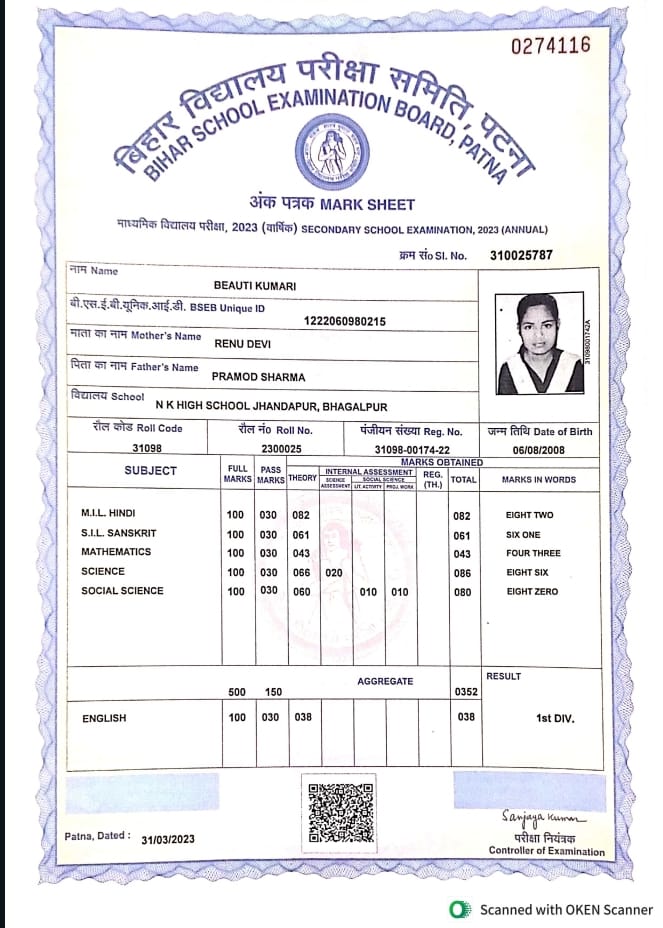 0274116
बिहार विद्यालय परीक्षा समिति, पटना
BIHAR SCHOOL EXAMINATION BOARD, PATNA
अंक पत्रक MARK SHEET
माध्यमिक विद्यालय परीक्षा, 2023 (वार्षिक) SECONDARY SCHOOL EXAMINATION, 2023 (ANNUAL)
क्रम सं० Sl. No. 310025787
नाम Name
BEAUTI KUMARI
बी.एस.ई.बी.यूनिक.आई.डी. BSEB Unique ID
1222060980215
माता का नाम Mother's Name RENU DEVI
पिता का नाम Father's Name PRAMOD SHARMA
विद्यालय School N K HIGH SCHOOL JHANDAPUR, BHAGALPUR
31098001742A
रौल कोड Roll Code रौल नं० Roll No. पंजीयन संख्या Reg. No. जन्म तिथि Date of Birth
31098 2300025 31098-00174-22 06/08/2008
SUBJECT FULL MARKS PASS MARKS MARKS OBTAINED
THEORY INTERNAL ASSESSMENT REG. (TH.) TOTAL MARKS IN WORDS
SCIENCE ASSESSMENT SOCIAL SCIENCE LIT. ACTIVITY PROJ. WORK
M.I.L. HINDI 100 030 082 082 EIGHT TWO
S.I.L. SANSKRIT 100 030 061 061 SIX ONE
MATHEMATICS 100 030 043 043 FOUR THREE
SCIENCE 100 030 066 020 086 EIGHT SIX
SOCIAL SCIENCE 100 030 060 010 010 080 EIGHT ZERO
AGGREGATE RESULT
500 150 0352
ENGLISH 100 030 038 038 1st DIV.
Sanjaya Kumar
Patna, Dated : 31/03/2023
परीक्षा नियंत्रक
Controller of Examination
Scanned with OKEN Scanner